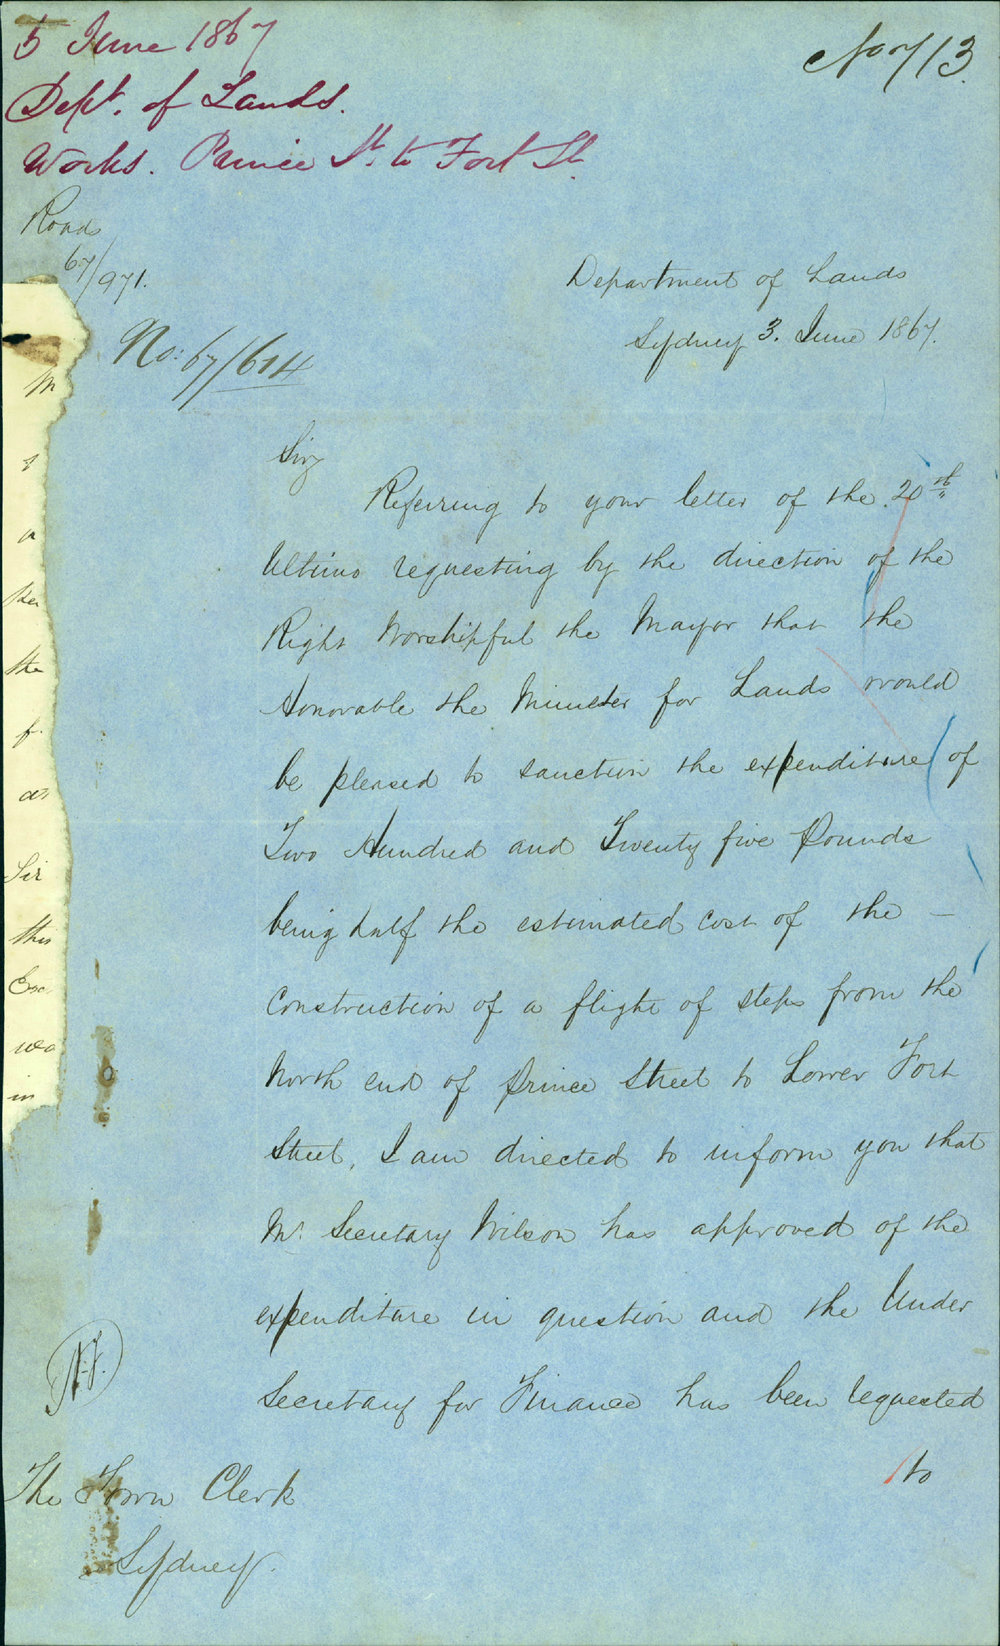 5 June 1867
No 713.
Dept. of Lands.
Works. Prince St. to Fort St.
Roads
67/971.
Department of Lands
Sydney 3. June 1867.
No: 67/614
Sir,
Referring to your letter of the 20th
Ultimo requesting by the direction of the
Right Worshipful the Mayor that the
Honorable the Minister for Lands would
be pleased to sanction the expenditure of
Two Hundred and Twenty five Pounds
being half the estimated cost of the —
Construction of a flight of steps from the
North end of Prince Street to Lower Fort
Street, I am directed to inform you that
Mr. Secretary Wilson has approved of the
expenditure in question and the Under
Secretary for Finance has been requested
to
The Town Clerk
Sydney.
M
a
the
f
as
Sir
this
in